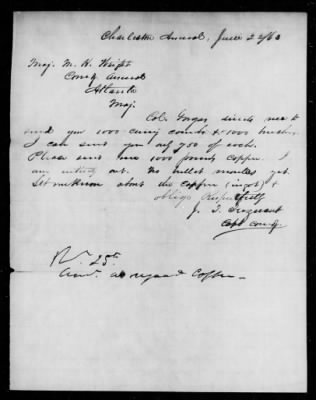 Charleston Arsenal, June 22/63
Maj. M. H. Wright
Comdg Arsenal
Atlanta
Maj.
Col. Gorgas directs me to
send you 1000 curry combs & 1000 brushes
I can send you only 750 of each.
Please send me 1000 pounds copper. I
am entirely out. No bullet moulds yet.
Let me know about the copper (ingot) &
oblige Respectfully
J. T.
Capt Comdg.
25th
Ansd. as regards Copper